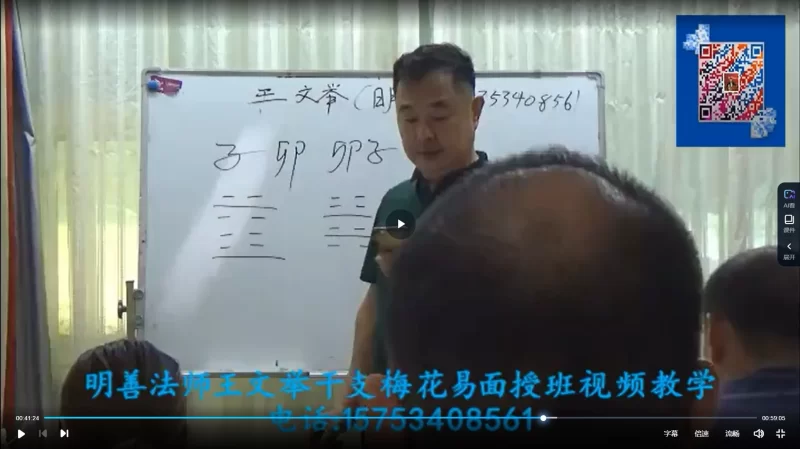 王文举（明 5753408561
子 卯 卯 子
AI看
课件
展开
明善法师王文举干支梅花易面授班视频教学
电话:15753408561
00:41:24
00:59:05
字幕 倍速 流畅